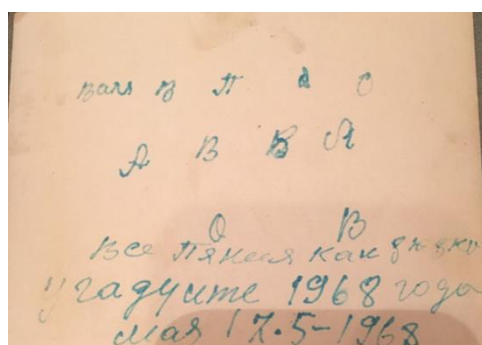 Валя В П д О
А В В Я
О В
Все пяные как
угадуите 1968 года
мая 17.5-1968